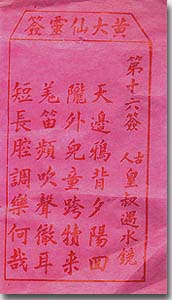 黃大仙靈簽
第十六簽
古人
皇叔遇水鏡
天邊鴉背夕陽回
隴外兒童跨犢来
羗笛頻吹聲徹耳
短長腔調樂何哉